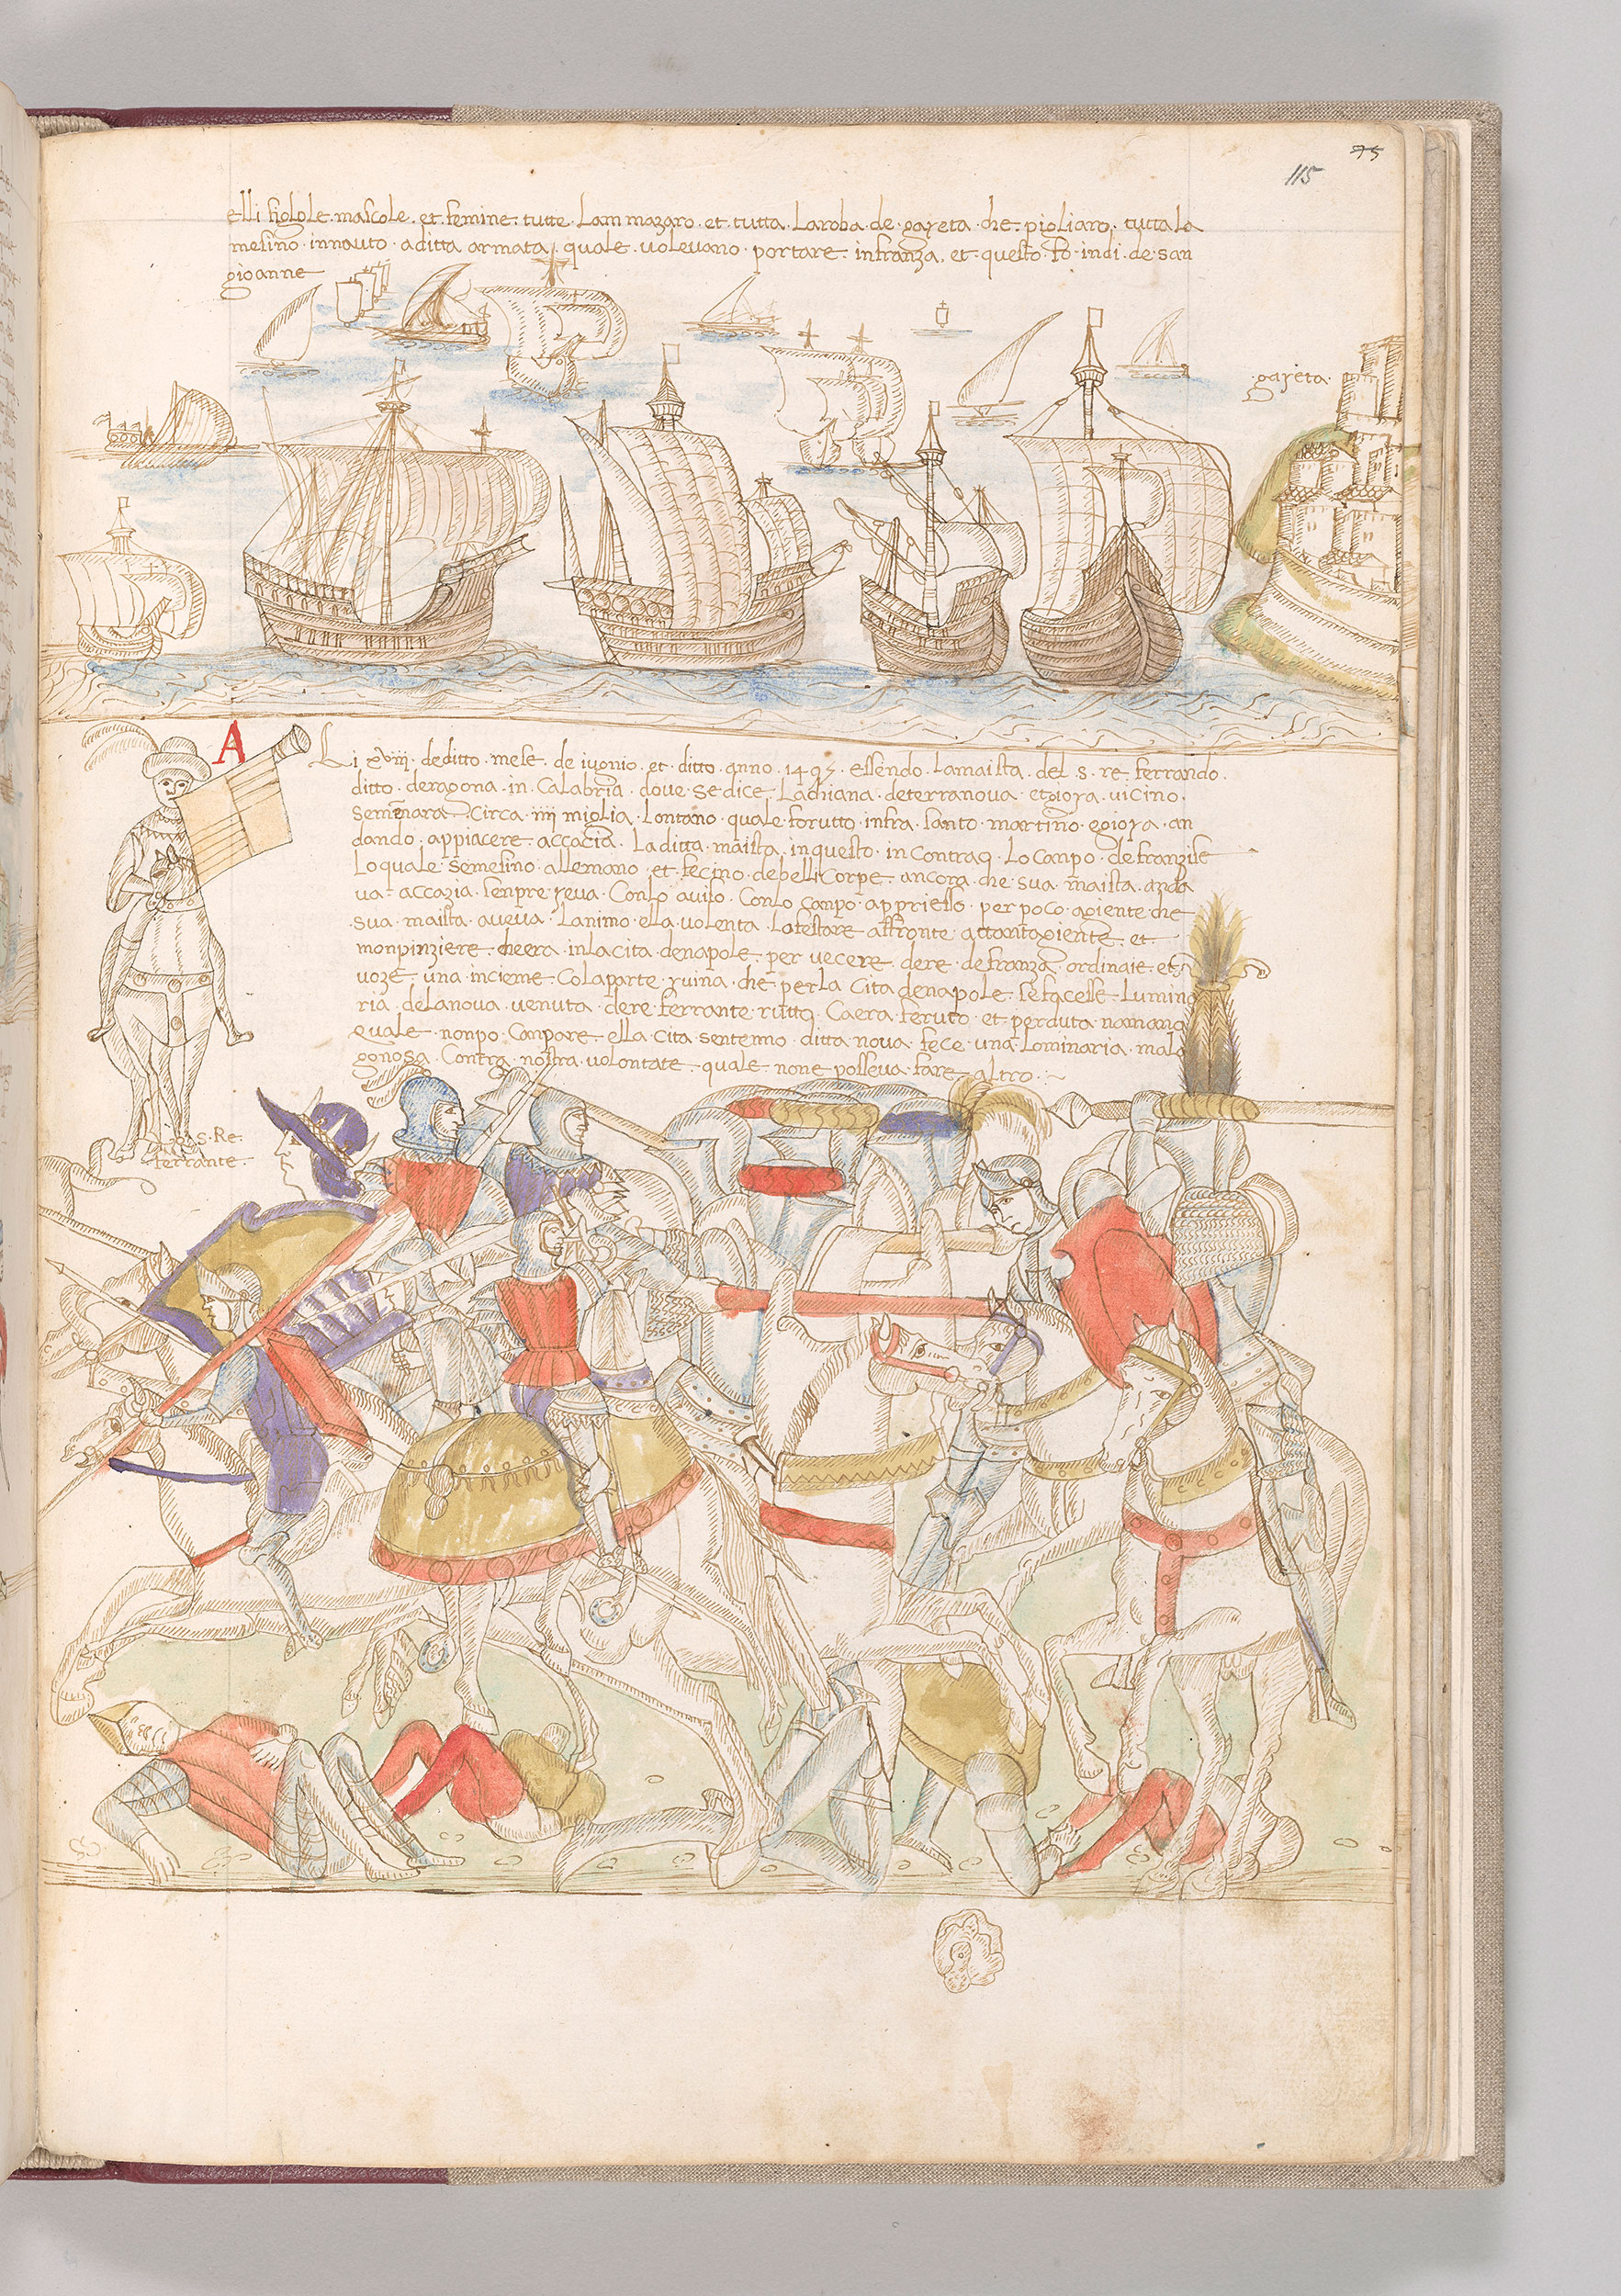 75
115
elli figlole mascole. et. femine. tutte. Lam mazaro. et. tutta. Laroba. de. gayeta. che. pigliaro. tutta la
mesino. innauto. a ditta armata. quale. volevano. portare. infranza. et. questo. fo. indi. de. san
gioanne
gayeta.
A
Li xviii. deditto. mese. de iugnio. et. ditto. anno. 1495. essendo. Lamaista. del. s. re. ferrando.
ditto. deragona. in. Calabria. dove. se dice. Lachiana. deterranova. et gioya. vicino.
semenara. Circa. iiii miglia. Lontano. quale. forutto. infra. santo. martino. egioya. an
dando. appiacere. accacia. Laditta. maista. inquesto. in contrao. Lo campo. de franzise
Loquale. semesino. allemano. et. fecino. debelli Corpe. ancora. che. sua. maista. anda
va. accazia. senpre. yeva. Conlo aviso. Conlo campo. appriesso. per poco. agiente. che
sua. maista. aveva. Lanimo. ella. volenta. Lofestare affronte. attantagiente. et.
monpinziere. cheera. inlacita. denapole. per vecere. dere. defranza. ordinaie. et
voze. una. incieme. Colaparte. ruina. che. perla Cita denapole. sefacesse. Lumina
ria. delanova. venuta. dere. ferrante. rutto. Caera. feruto. et. perduta. namano
quale. nonpo. Conpare. ella cita. sentenno. ditta nova. fece. una. Lominaria. malo
gonosa. Contra. nostra. volontate. quale. none posseva. fare. altro.
s. Re.
ferrante.